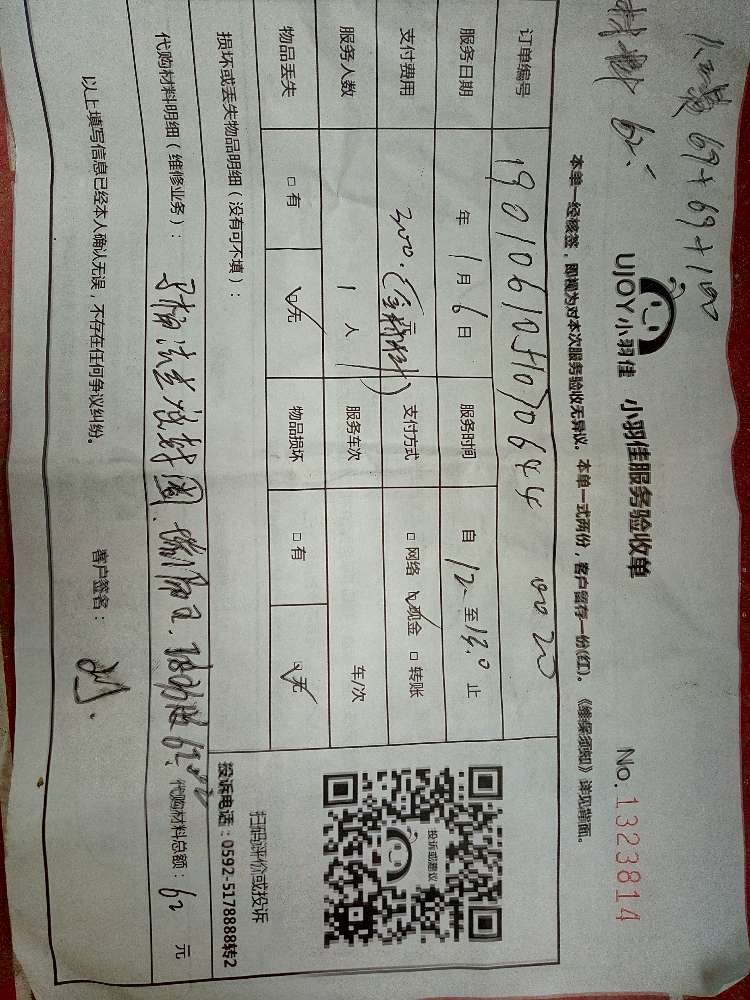 人工费 69+69+100
材料 62.
UJOY小羽佳 小羽佳服务验收单 No.1323814
本单一经核签，即视为对本次服务验收无异议。本单一式两份，客户留存一份(红)。《维保须知》详见背面。
订单编号
服务日期 年 1 月 6 日 服务时间 自 12 至 13.0 止
支付费用 300.元(含材料) 支付方式 □ 网络 ☑ 现金 □ 转账
服务人数 1 人 服务车次 车/次
物品丢失 □ 有 ☑ 无 物品损坏 □ 有 ☑ 无
投诉或建议
扫码评价或投诉
投诉电话：0592-5178888转2
损坏或丢失物品明细（没有可不填）：
代购材料明细（维修业务）： 代购材料总额：62 元
以上填写信息已经本人确认无误，不存在任何争议纠纷。 客户签名：